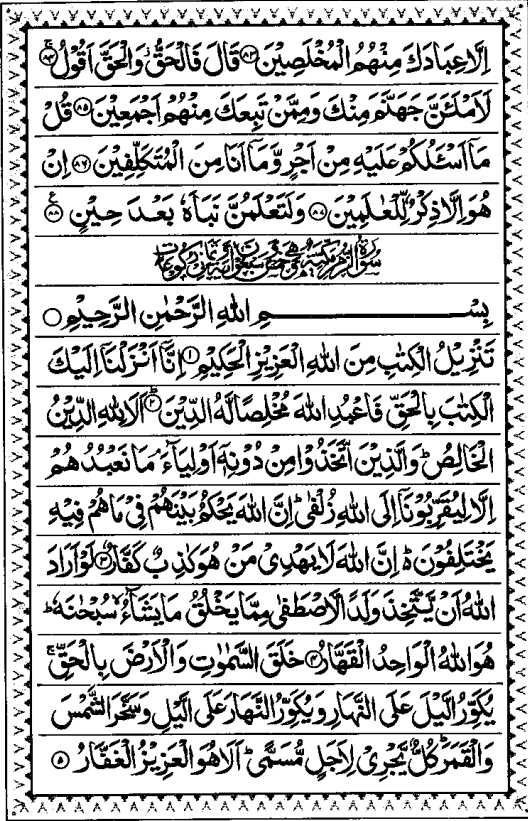 اِلَّا عِبَادَكَ مِنْهُمُ الْمُخْلَصِيْنَ ﴿۸۳﴾ قَالَ فَالْحَقُّ وَالْحَقَّ اَقُوْلُ ﴿۸۴﴾
لَاَمْلَئَنَّ جَهَنَّمَ مِنْكَ وَمِمَّنْ تَبِعَكَ مِنْهُمْ اَجْمَعِيْنَ ﴿۸۵﴾ قُلْ
مَاۤ اَسْئَلُكُمْ عَلَيْهِ مِنْ اَجْرٍ وَّمَاۤ اَنَا مِنَ الْمُتَكَلِّفِيْنَ ﴿۸۶﴾ اِنْ
هُوَ اِلَّا ذِكْرٌ لِّلْعٰلَمِيْنَ ﴿۸۷﴾ وَلَتَعْلَمُنَّ نَبَاَهٗ بَعْدَ حِيْنٍ ﴿۸۸﴾
سُوْرَةُ الزُّمَرِ مَكِّيَّةٌ وَّهِيَ خَمْسٌ وَّسَبْعُوْنَ اٰيَةً وَّثَمَانِيْ رُكُوْعَاتٍ
بِسْمِ اللّٰهِ الرَّحْمٰنِ الرَّحِيْمِ ○
تَنْزِيْلُ الْكِتٰبِ مِنَ اللّٰهِ الْعَزِيْزِ الْحَكِيْمِ ﴿۱﴾ اِنَّاۤ اَنْزَلْنَاۤ اِلَيْكَ
الْكِتٰبَ بِالْحَقِّ فَاعْبُدِ اللّٰهَ مُخْلِصًا لَّهُ الدِّيْنَ ﴿۲﴾ اَلَا لِلّٰهِ الدِّيْنُ
الْخَالِصُ ؕ وَالَّذِيْنَ اتَّخَذُوْا مِنْ دُوْنِهٖۤ اَوْلِيَآءَ ۘ مَا نَعْبُدُهُمْ
اِلَّا لِيُقَرِّبُوْنَاۤ اِلَى اللّٰهِ زُلْفٰى ؕ اِنَّ اللّٰهَ يَحْكُمُ بَيْنَهُمْ فِيْ مَا هُمْ فِيْهِ
يَخْتَلِفُوْنَ ؕ۬ اِنَّ اللّٰهَ لَا يَهْدِيْ مَنْ هُوَ كٰذِبٌ كَفَّارٌ ﴿۳﴾ لَوْ اَرَادَ
اللّٰهُ اَنْ يَّتَّخِذَ وَلَدًا لَّاصْطَفٰى مِمَّا يَخْلُقُ مَا يَشَآءُ ۙ سُبْحٰنَهٗ ؕ
هُوَ اللّٰهُ الْوَاحِدُ الْقَهَّارُ ﴿۴﴾ خَلَقَ السَّمٰوٰتِ وَالْاَرْضَ بِالْحَقِّ ۚ
يُكَوِّرُ الَّيْلَ عَلَى النَّهَارِ وَيُكَوِّرُ النَّهَارَ عَلَى الَّيْلِ وَسَخَّرَ الشَّمْسَ
وَالْقَمَرَ ؕ كُلٌّ يَّجْرِيْ لِاَجَلٍ مُّسَمًّى ؕ اَلَا هُوَ الْعَزِيْزُ الْغَفَّارُ ﴿۵﴾